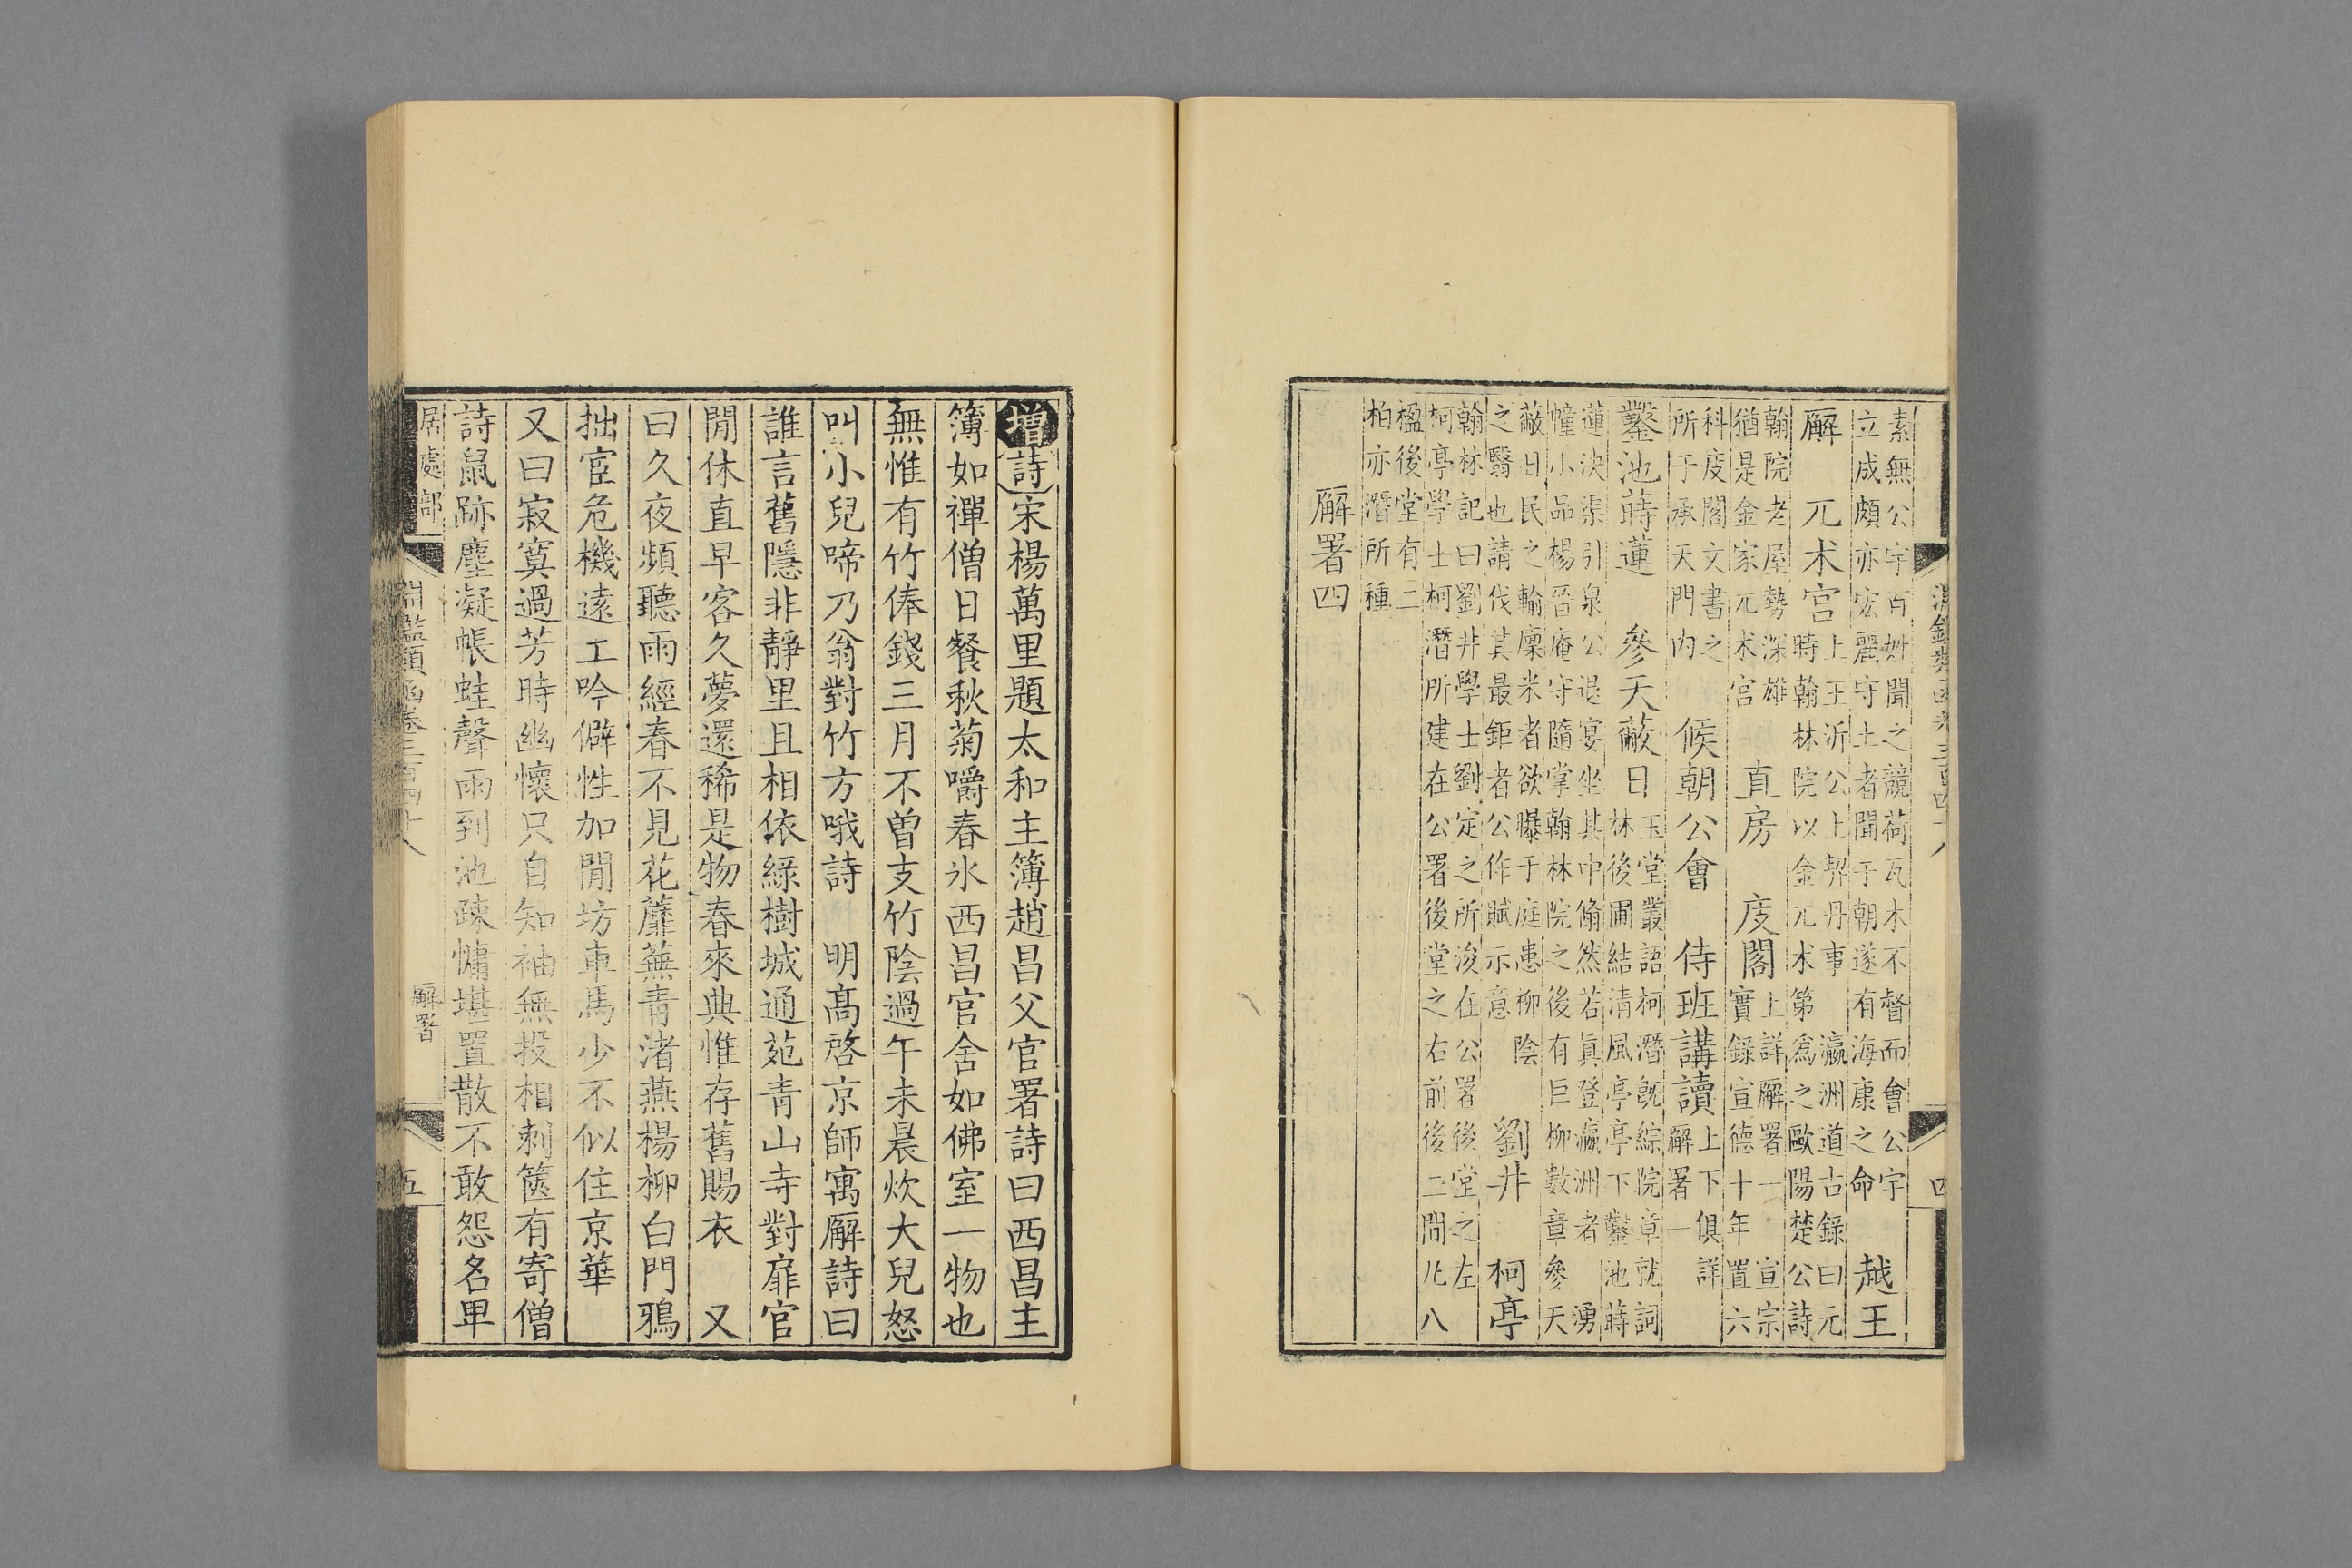 素無公宇百姓聞之競荷瓦木不督而會公宇
立成頗亦宏麗守土者聞于朝遂有海康之命
越王
廨 兀术宮
上王沂公上契丹事 瀛洲道古錄曰元
時翰林院以金兀术第爲之歐陽楚公詩
翰院老屋勢深雄
猶是金家兀术宮
直房 庋閣
上詳廨署一 宣宗
實錄宣德十年置六
科庋閣文書之
所于承天門内
候朝公會 侍班講讀
上下俱詳
廨署一
鑿池蒔蓮 參天蔽日
玉堂叢語柯潛既綜院章就詞
林後圃結清風亭亭下鑿池蒔
蓮決渠引泉公退宴坐其中翛然若眞登瀛洲者 湧
幢小品楊晉庵守隨掌翰林院之後有巨柳數章參天
蔽日民之輸廩米者欲曝于庭患柳陰
之翳也請伐其最鉅者公作賦示意
劉井 柯亭
翰林記曰劉井學士劉定之所浚在公署後堂之左
柯亭學士柯潛所建在公署後堂之右前後二間凡八
楹後堂有二
柏亦潛所種
廨署四
增詩宋楊萬里題太和主簿趙昌父官署詩曰西昌主
簿如禪僧日餐秋菊嚼春氷西昌官舍如佛室一物也
無惟有竹俸錢三月不曽支竹陰過午未晨炊大兒怒
叫小兒啼乃翁對竹方哦詩 明高啓京師寓廨詩曰
誰言舊隱非靜里且相依綠樹城通苑青山寺對扉官
閒休直早客久夢還稀是物春來典惟存舊賜衣 又
曰久夜頻聽雨經春不見花蘼蕪青渚燕楊柳白門鴉
拙宦危機遠工吟僻性加閒坊車馬少不似住京華
又曰寂寞過芳時幽懷只自知袖無投相刺篋有寄僧
詩鼠跡塵凝帳蛙聲雨到池疎慵堪置散不敢怨名卑
居處部
淵鑑類函卷三百四十八
廨署
五